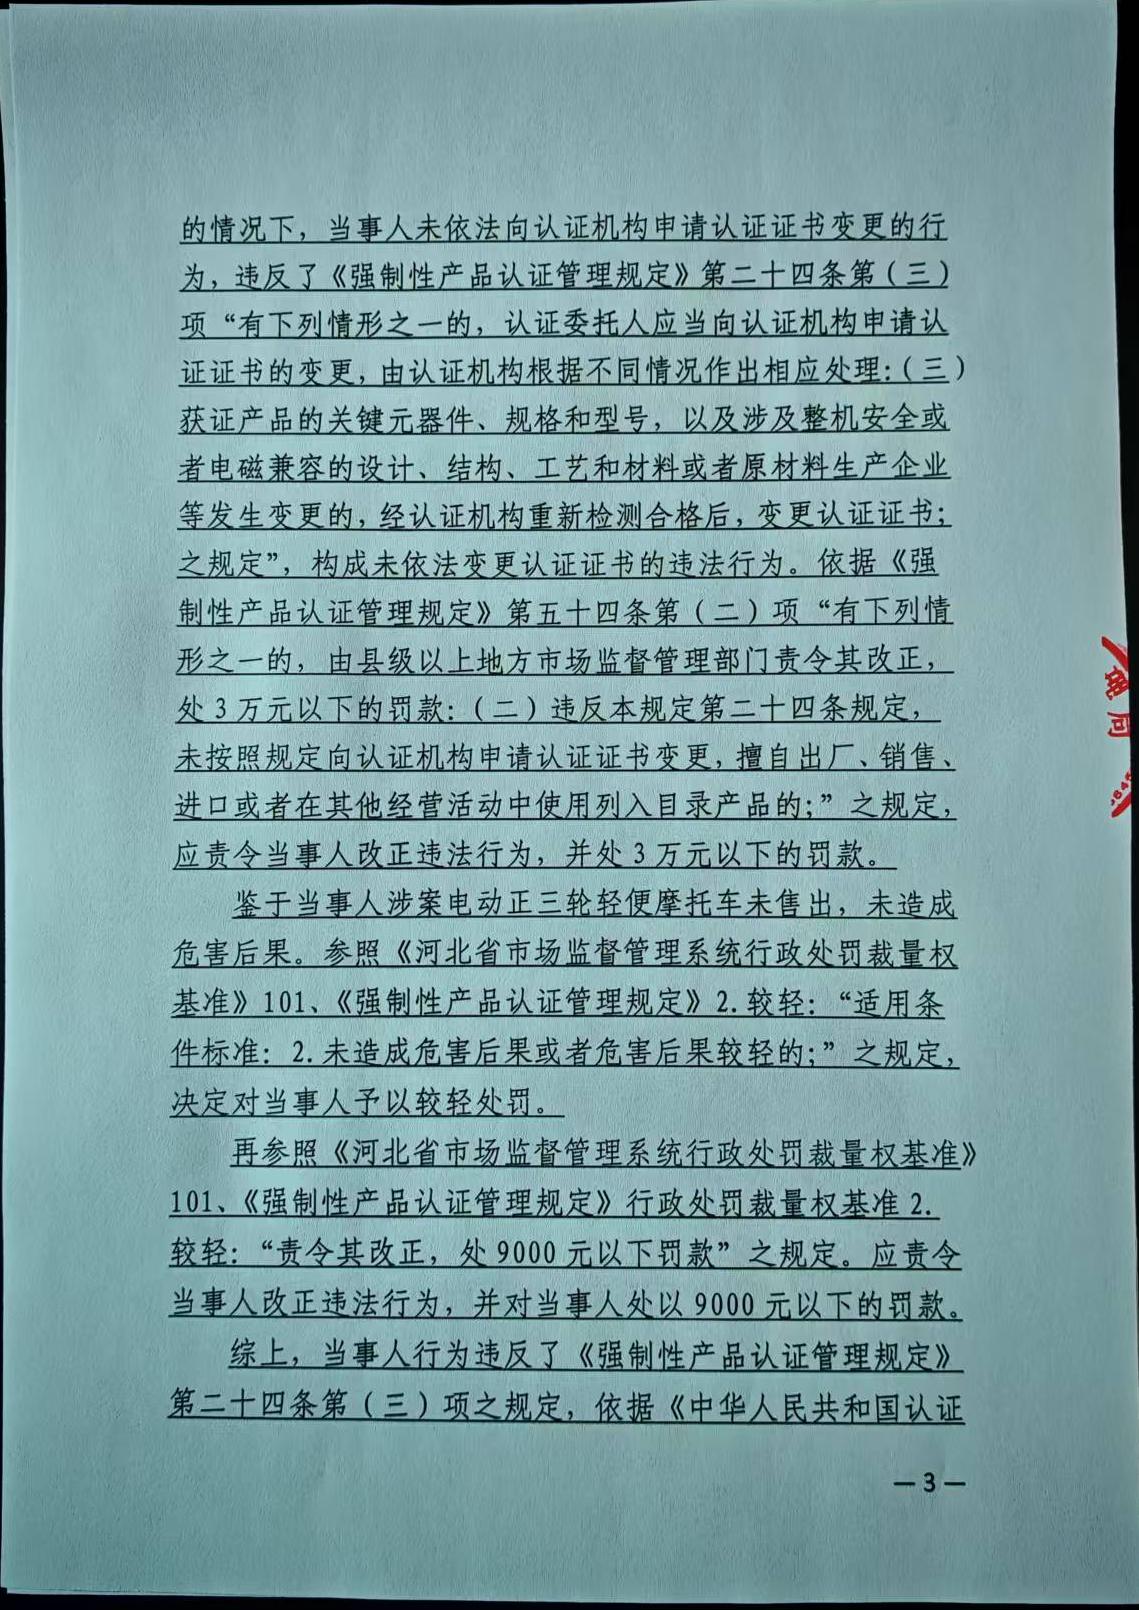 的情况下，当事人未依法向认证机构申请认证证书变更的行
为，违反了《强制性产品认证管理规定》第二十四条第（三）
项“有下列情形之一的，认证委托人应当向认证机构申请认
证证书的变更，由认证机构根据不同情况作出相应处理：（三）
获证产品的关键元器件、规格和型号，以及涉及整机安全或
者电磁兼容的设计、结构、工艺和材料或者原材料生产企业
等发生变更的，经认证机构重新检测合格后，变更认证证书；
之规定”，构成未依法变更认证证书的违法行为。依据《强
制性产品认证管理规定》第五十四条第（二）项“有下列情
形之一的，由县级以上地方市场监督管理部门责令其改正，
处3万元以下的罚款：（二）违反本规定第二十四条规定，
未按照规定向认证机构申请认证证书变更，擅自出厂、销售、
进口或者在其他经营活动中使用列入目录产品的；”之规定，
应责令当事人改正违法行为，并处3万元以下的罚款。
鉴于当事人涉案电动正三轮轻便摩托车未售出，未造成
危害后果。参照《河北省市场监督管理系统行政处罚裁量权
基准》101、《强制性产品认证管理规定》2.较轻：“适用条
件标准：2.未造成危害后果或者危害后果较轻的；”之规定，
决定对当事人予以较轻处罚。
再参照《河北省市场监督管理系统行政处罚裁量权基准》
101、《强制性产品认证管理规定》行政处罚裁量权基准2.
较轻：“责令其改正，处9000元以下罚款”之规定。应责令
当事人改正违法行为，并对当事人处以9000元以下的罚款。
综上，当事人行为违反了《强制性产品认证管理规定》
第二十四条第（三）项之规定，依据《中华人民共和国认证
—3—